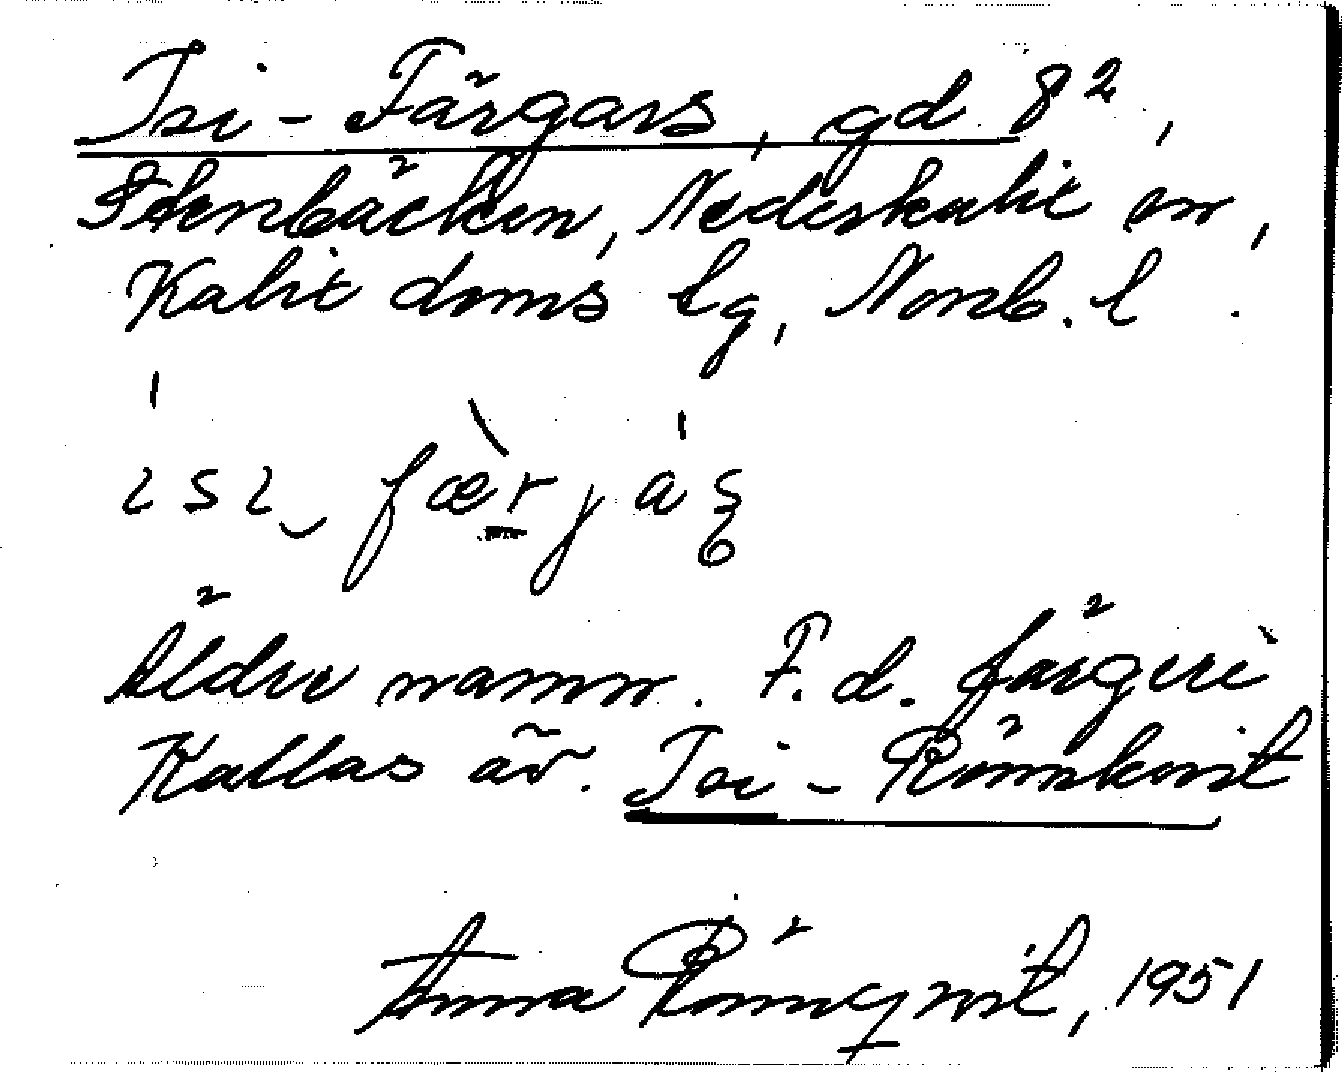 Isi-Färgars, gd 8²,
Stenbäcken, Nederkalix sn,
Kalix doms lg, Norrb. l.
ɩsɩ‿ færjaʂ
Äldre namn. F. d. färgeri
Kallas äv. Isi-Rönnkvist
Anna Rönnqvist, 1951